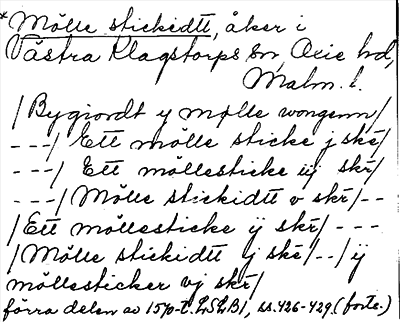 *Mölle stickidtt, åker i
Västra Klagstorps sn, Oxie hd,
Malm. l.
/Bygiordt y mølle wongenn/
---/ Ett mölle sticke j ske/
---/ Ett möllesticke iij skr/
---/ Mölle stickidtt v skr/--
/Ett möllesticke ij skr/ ---
/Mölle stickidtt ij ske/--/ ij
möllesticker vj skr/
förra delen av 1570-t. LSLB1, ss. 426-429 (forts.)